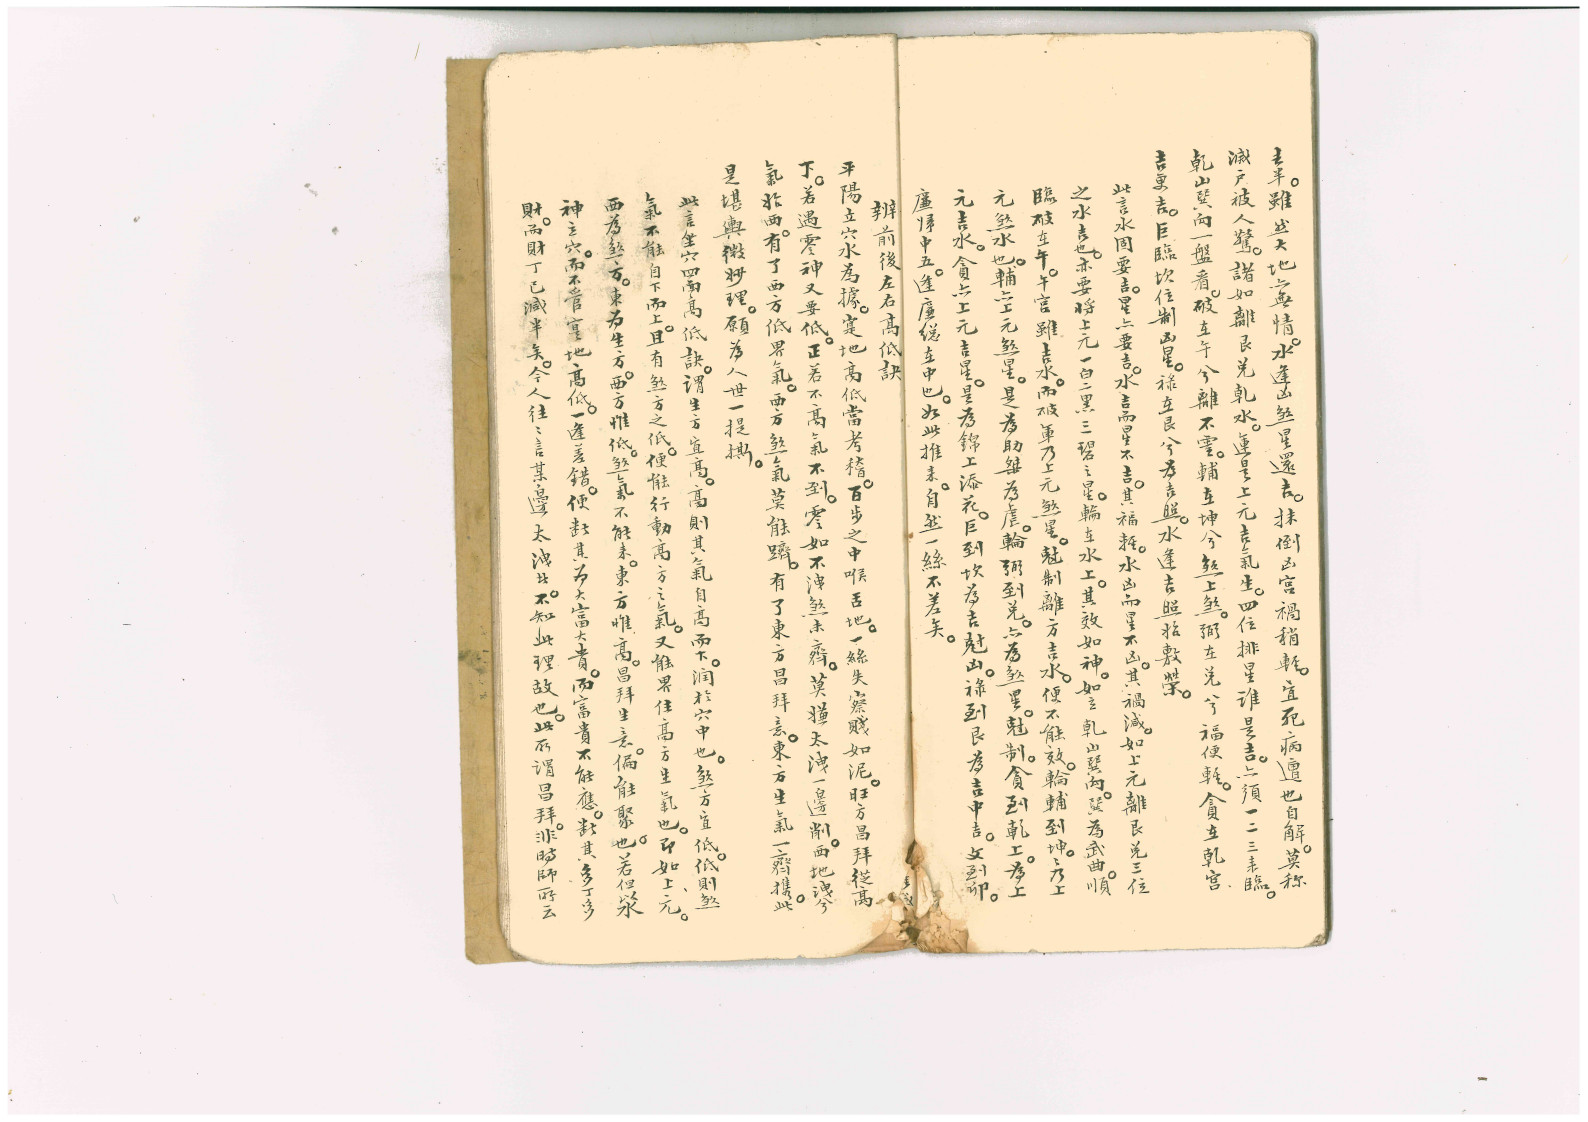 去半。雖然大地無情。水逢凶煞星還吉。抹倒凶宮禍稍輕。宜死病遭也自解。莫称
滅戶被人驚。諸如離艮兌乾水。運是上元吉氣生。四位排星谁是吉。六須一二三来臨。
乾山巽向一盤看。破在午兮離不雲。輔在坤兮煞上煞。弼在兌兮福便輕。貪在乾宮
吉更吉。巨臨坎位制凶星。祿在艮兮為吉照。水逢吉照始敷榮。
此言水固要吉。星六要吉。水吉而星不吉。其福輕。水凶而星不凶。其禍減。如上元離艮兌三位
之水吉也。亦要將上元一白二黑三碧之星。輪在水上。其效如神。如立乾山巽向。巽為武曲。順
臨破在午。午宮雖吉水。而破軍乃上元煞星。尅制離方吉水。便不能效。輪輔到坤。坤乃上
元煞水也。輔六上元煞星。是為助桀為虐。輪弼到兌。六為煞星。尅制。貪到乾上。為上
元吉水。貪六上元吉星。是為錦上添花。巨到坎為吉尅凶。祿到艮為吉中吉。文到卯。
廉惇中五。逢廉総在中也。如此推来。自然一絲不差矣。
辨前後左右高低訣
平陽立穴水為據。寔地高低當考稽。百步之中喉舌地。一絲失察賤如泥。旺方昌拜從高
下。若遇零神又要低。正若不高氣不到。零如不洩煞未齊。莫嫌太洩一邊削。西地洩兮
氣始西。有了西方低界氣。西方煞氣莫能躋。有了東方昌拜意。東方生氣一齊携。此
是堪輿微妙理。願為人世一提撕。
此言坐穴四面高低訣。謂生方宜高。高則其氣自高而下。润於穴中也。煞方宜低。低則煞
氣不能自下而上。且有煞方之低。便能行動高方之氣。又能界住高方生氣也。即如上元。
西為煞方。東為生方。西方惟低。煞氣不能来。東方惟高。昌拜生意。偏能聚也。若但以水
神立穴。而不管寔地高低。一逢差錯。便断其为大富大貴。而富貴不能應。断其多丁多
財。而財丁已減半矣。今人往〻言某邊太洩者。不知此理故也。此所謂昌拜。非時師所云